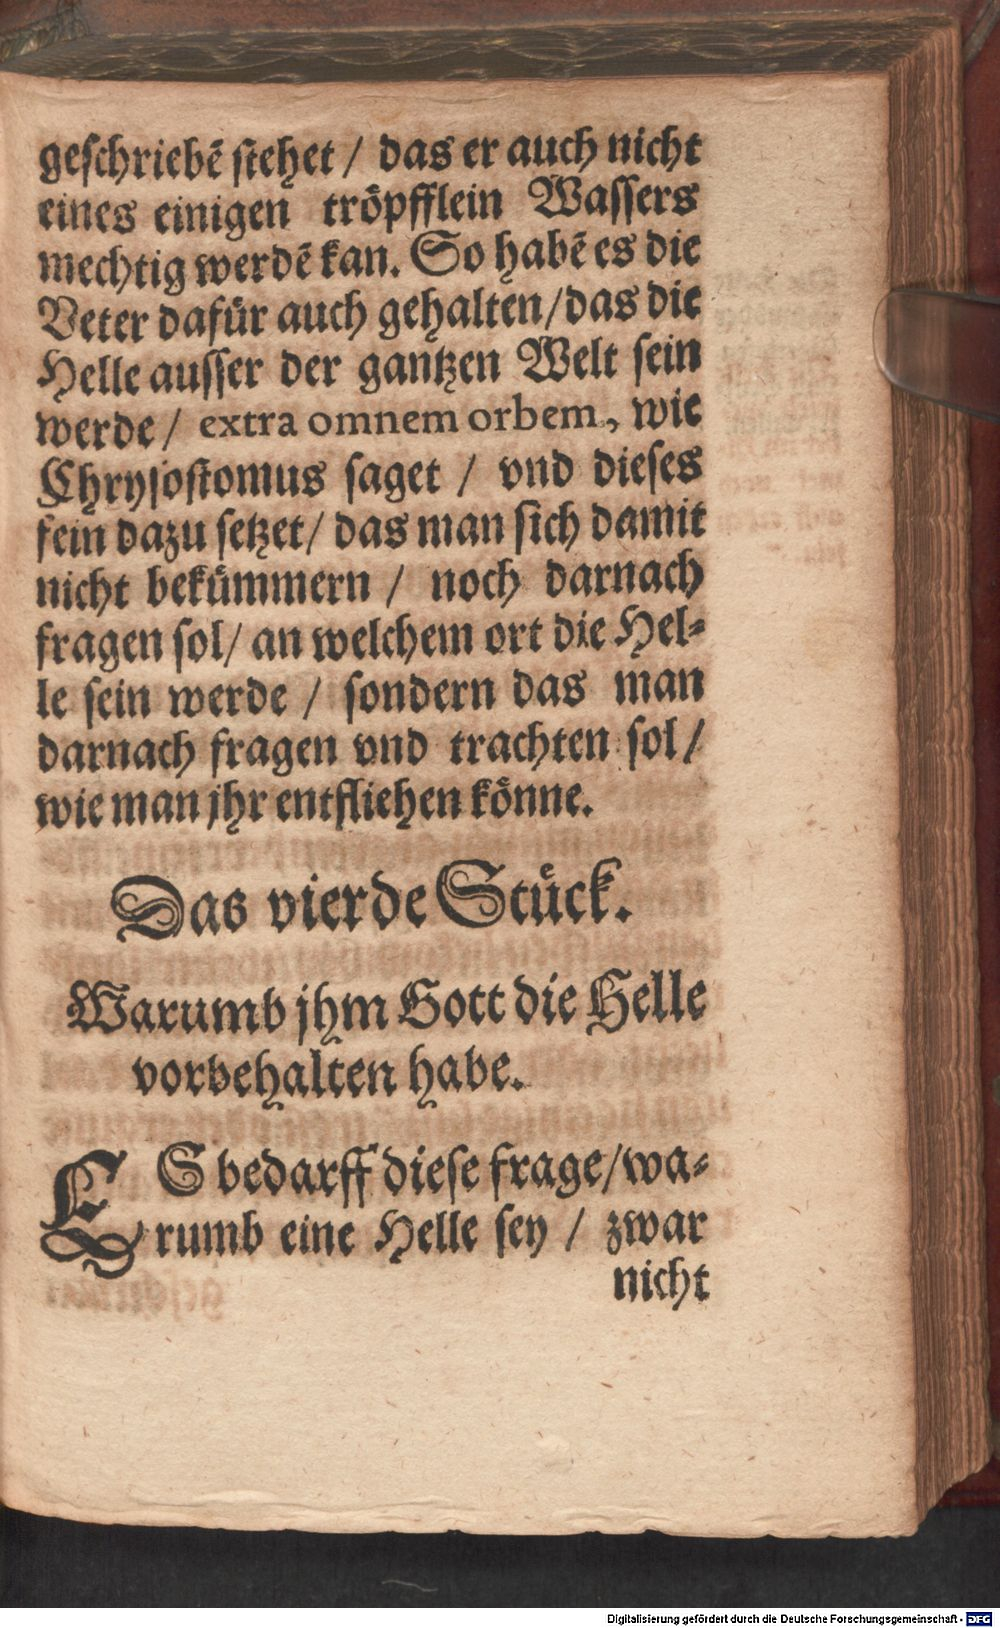 geschriebẽ stehet / das er auch nicht
eines einigen tröpfflein Wassers
mechtig werdẽ kan. So habẽ es die
Veter dafür auch gehalten/das die
Helle ausser der gantzen Welt sein
werde / extra omnem orbem, wie
Chrysostomus saget / vnd dieses
fein dazu setzet/ das man sich damit
nicht bekümmern / noch darnach
fragen sol/ an welchem ort die Hel-
le sein werde / sondern das man
darnach fragen vnd trachten sol/
wie man jhr entfliehen könne.
Das vierde Stück.
Warumb jhm Gott die Helle
vorbehalten habe.
ES bedarff diese frage/wa-
rumb eine Helle sey / zwar
nicht
Digitalisierung gefördert durch die Deutsche Forschungsgemeinschaft - DFG